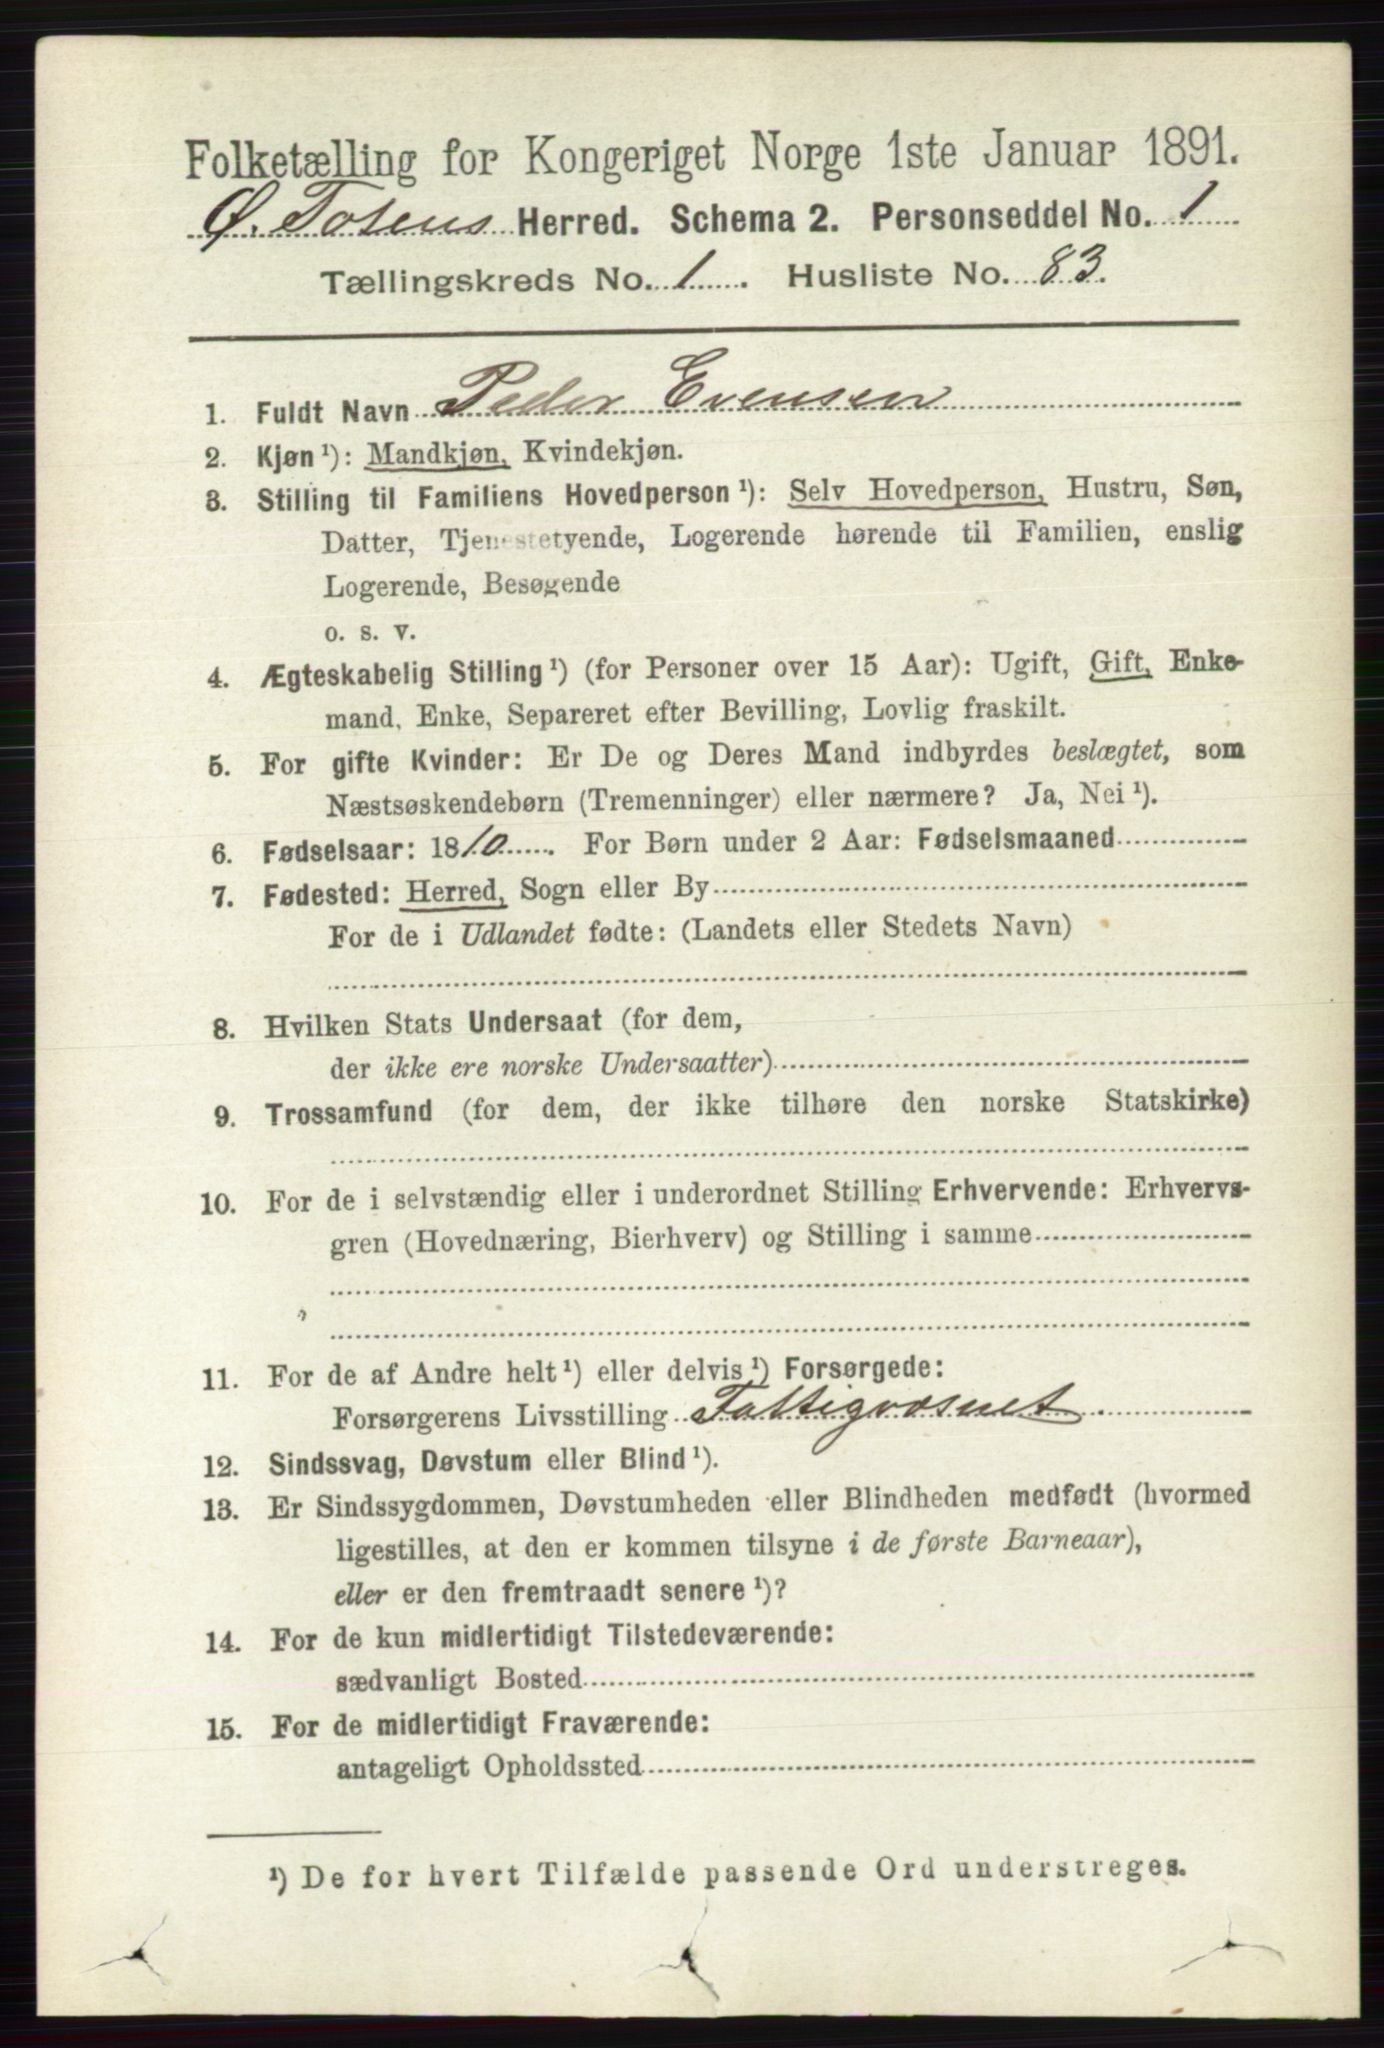 Folketælling for Kongeriget Norge 1ste Januar 1891.
Ø. Totens Herred. Schema 2. Personseddel No. 1
Tællingskreds No. 1. Husliste No. 83.
1. Fuldt Navn Peder Evensen
2. Kjøn ¹): Mandkjøn, Kvindekjøn.
3. Stilling til Familiens Hovedperson ¹): Selv Hovedperson, Hustru, Søn,
Datter, Tjenestetyende, Logerende hørende til Familien, enslig
Logerende, Besøgende
o. s. v.
4. Ægteskabelig Stilling ¹) (for Personer over 15 Aar): Ugift, Gift, Enke-
mand, Enke, Separeret efter Bevilling, Lovlig fraskilt.
5. For gifte Kvinder: Er De og Deres Mand indbyrdes beslægtet, som
Næstsøskendebørn (Tremenninger) eller nærmere? Ja, Nei ¹).
6. Fødselsaar: 1810. For Børn under 2 Aar: Fødselsmaaned
7. Fødested: Herred, Sogn eller By
For de i Udlandet fødte: (Landets eller Stedets Navn)
8. Hvilken Stats Undersaat (for dem,
der ikke ere norske Undersaatter)
9. Trossamfund (for dem, der ikke tilhøre den norske Statskirke)
10. For de i selvstændig eller i underordnet Stilling Erhvervende: Erhvervs-
gren (Hovednæring, Bierhverv) og Stilling i samme
11. For de af Andre helt ¹) eller delvis ¹) Forsørgede:
Forsørgerens Livsstilling Fattigvæsnet
12. Sindssvag, Døvstum eller Blind ¹).
13. Er Sindssygdommen, Døvstumheden eller Blindheden medfødt (hvormed
ligestilles, at den er kommen tilsyne i de første Barneaar),
eller er den fremtraadt senere ¹)?
14. For de kun midlertidigt Tilstedeværende:
sædvanligt Bosted
15. For de midlertidigt Fraværende:
antageligt Opholdssted
¹) De for hvert Tilfælde passende Ord understreges.